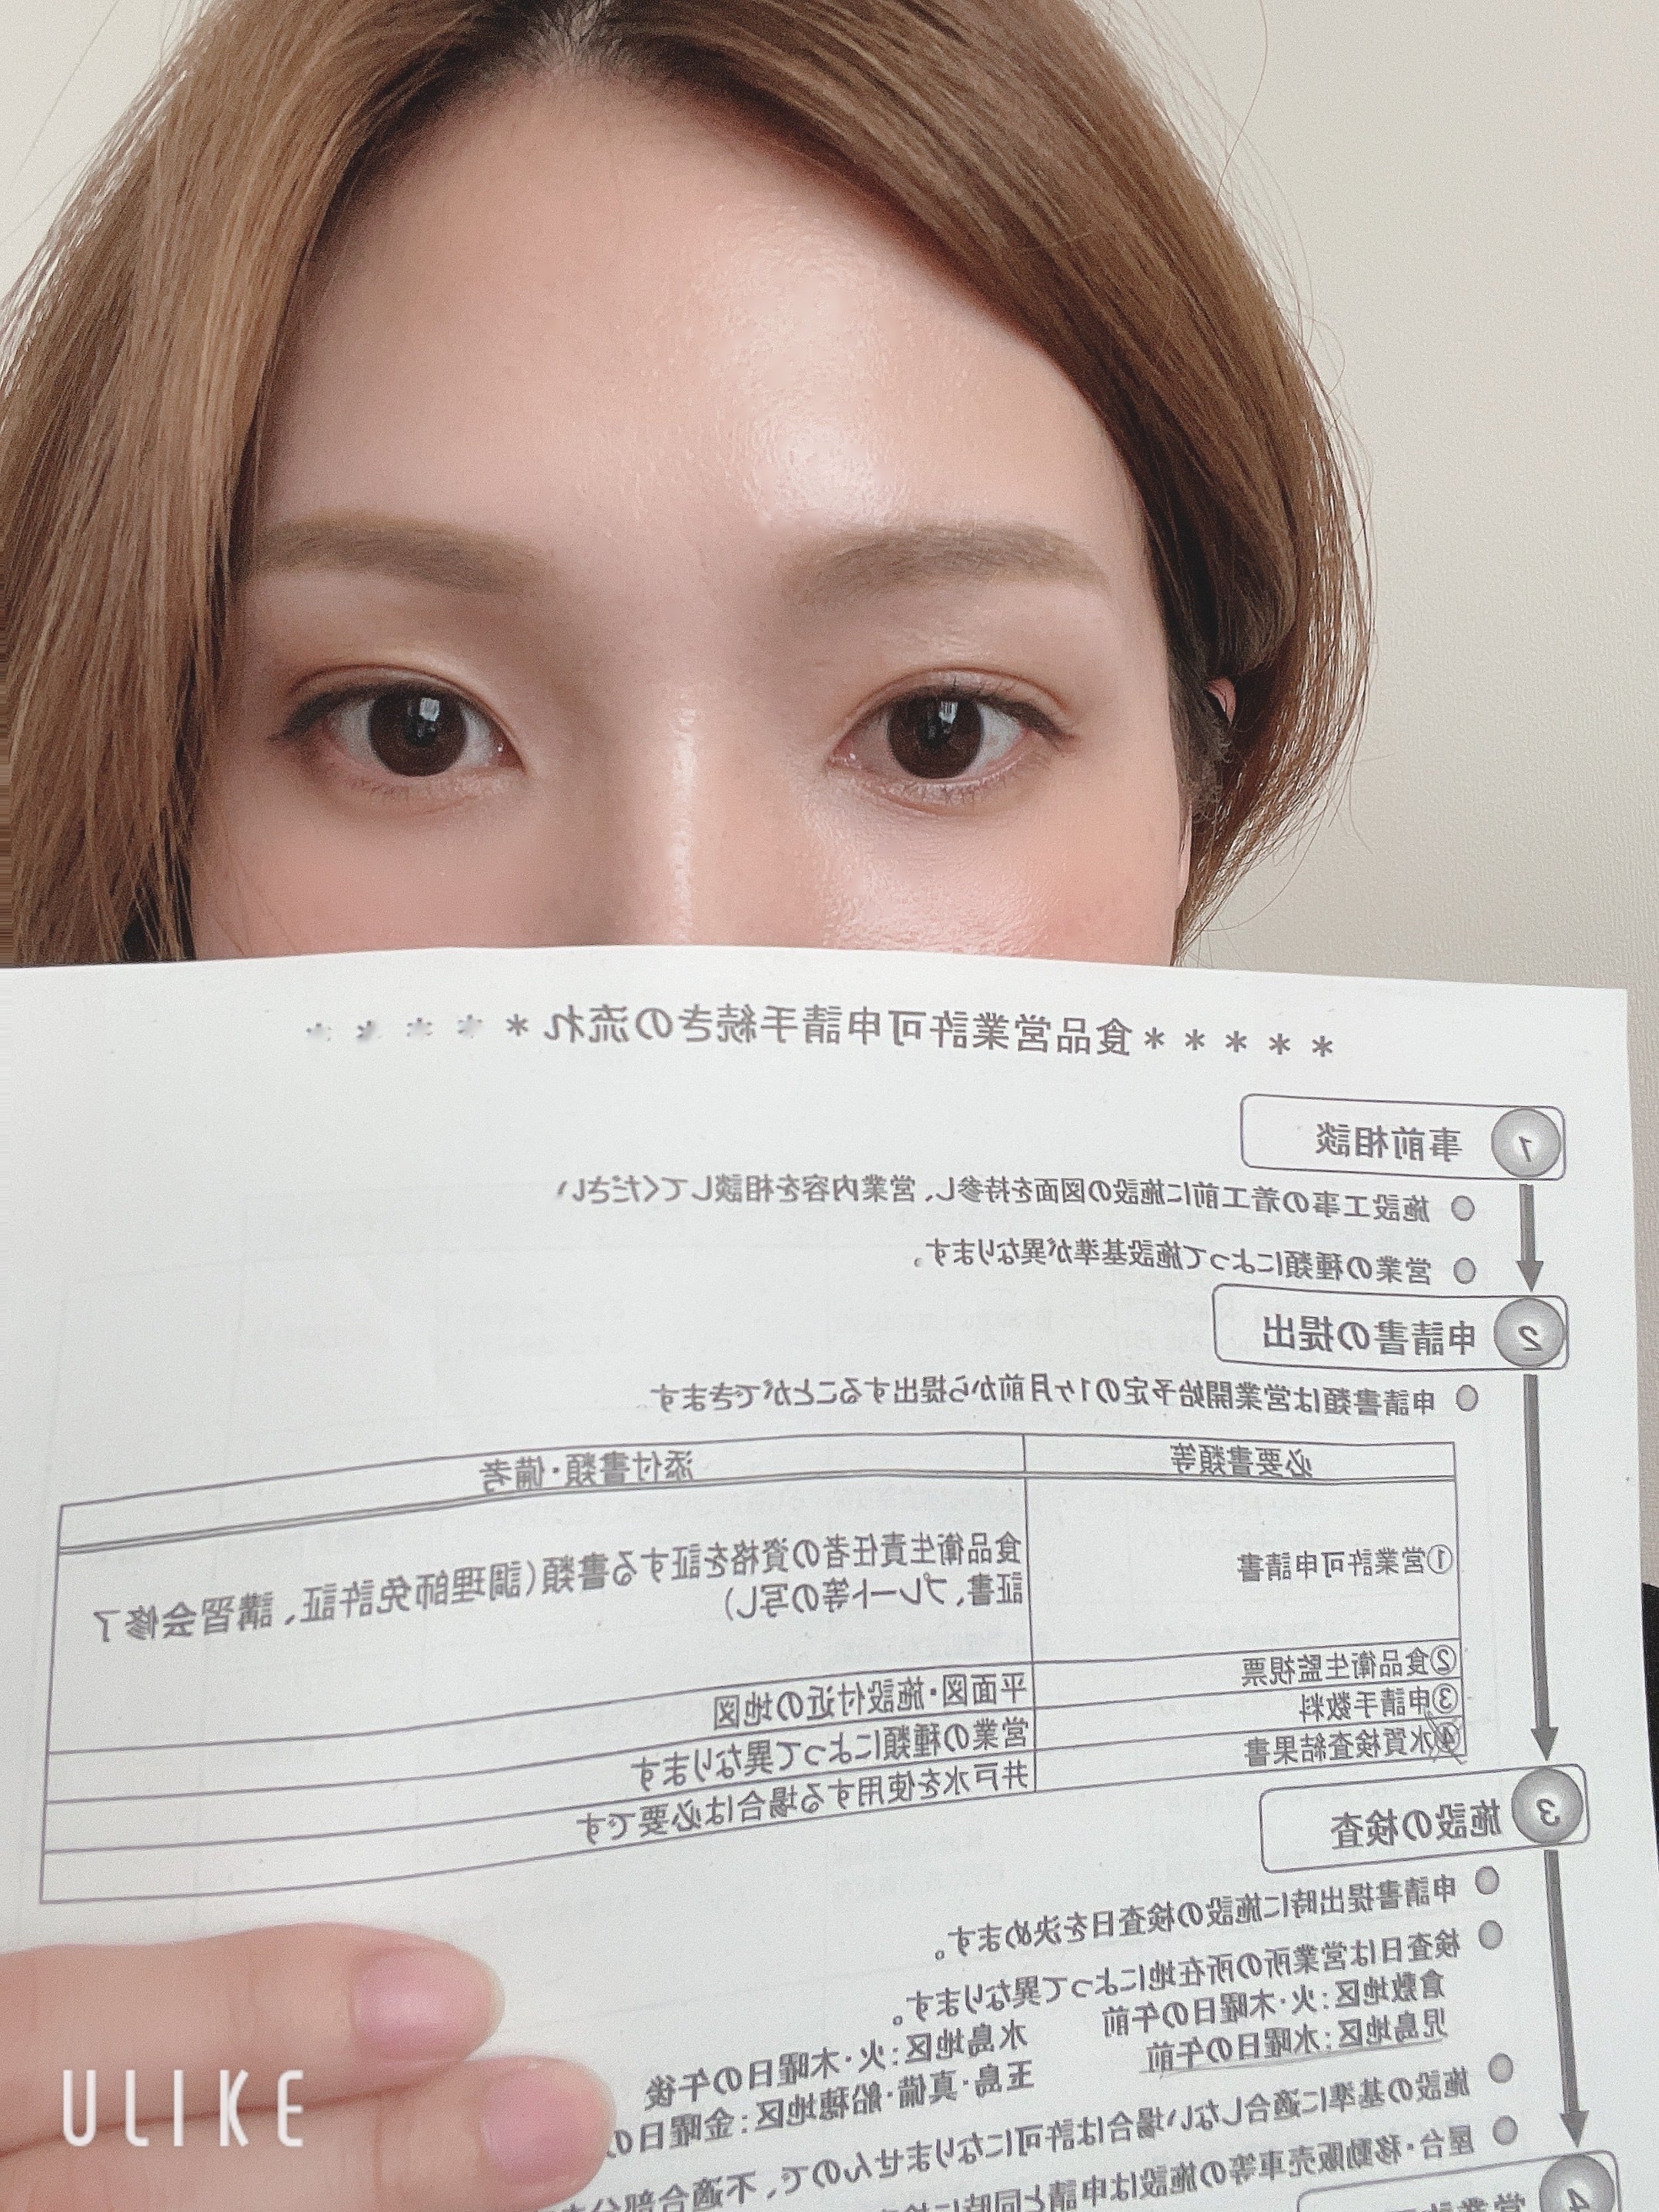 * * * * * 食品営業許可申請手続きの流れ * * * * *
1 事前相談
施設工事の着工前に施設の図面を持参し、営業内容を相談してください
営業の種類によって施設基準が異なります。
2 申請書の提出
申請書類は営業開始予定の1ヶ月前から提出することができます
必要書類等 添付書類・備考
①営業許可申請書 食品衛生責任者の資格を証する書類(調理師免許証、講習会修了
証書、プレート等の写し)
②食品衛生監視票 平面図・施設付近の地図
③申請手数料 営業の種類によって異なります
④水質検査結果書 井戸水を使用する場合は必要です
3 施設の検査
申請書提出時に施設の検査日を決めます。
検査日は営業所の所在地によって異なります。
倉敷地区:火・木曜日の午前 水島地区:火・木曜日の午後
児島地区:水曜日の午前 玉島・真備・船穂地区:金曜日の
施設の基準に適合しない場合は許可になりませんので、不適合部分
屋台・移動販売車等の施設は申請と同時に
4 営業
ULIKE